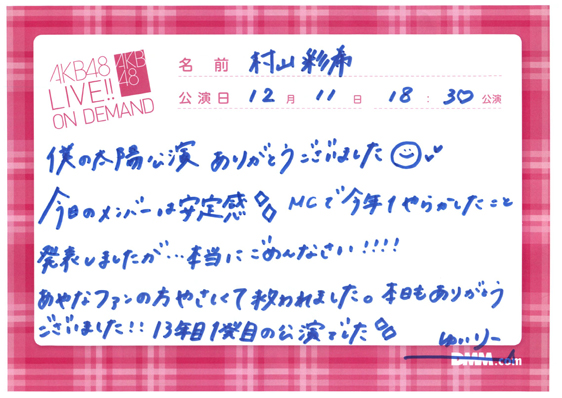 AKB48
LIVE!!
ON DEMAND
AKB
48
名前 村山彩希
公演日 12月 11日 18:30♡公演
僕の太陽公演 ありがとうございました
今日のメンバーは安定感 MCで今年1やらかしたこと
発表しましたが…本当にごめんなさい!!!!
あやなファンの方やさしくて救われました。本日もありがとう
ございました!! 13年目1発目の公演でした
ゆいりー
DMM.com